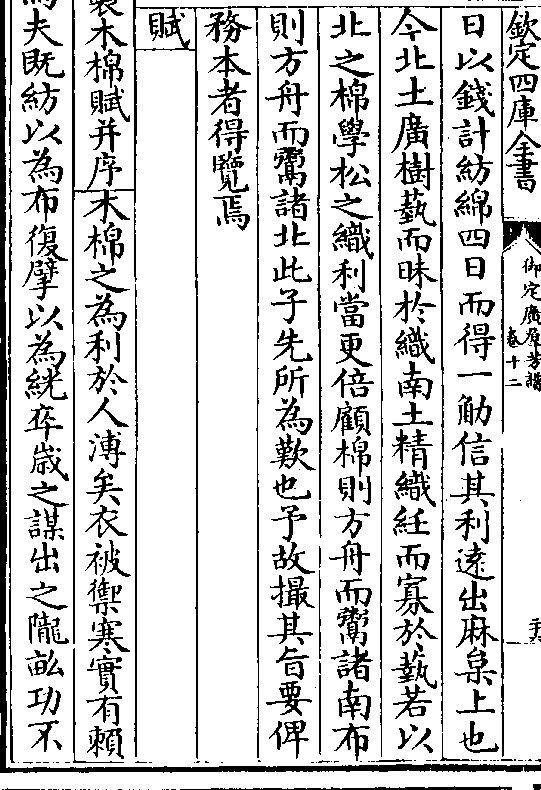 欽定四庫全書
御定廣羣芳譜
卷十二
日以錢計紡綿四日而得一觔信其利遠出麻枲上也
今北土廣樹藝而昧於織南土精織紝而寡於藝若以
北之棉學松之織利當更倍顧棉則方舟而鬻諸南布
則方舟而鬻諸北此子先所為歎也予故撮其旨要俾
務本者得覽焉
賦
木棉賦并序木棉之為利於人溥矣衣被禦寒實有賴
夫既紡以為布復擘以為絖卒歲之謀出之隴畝功不